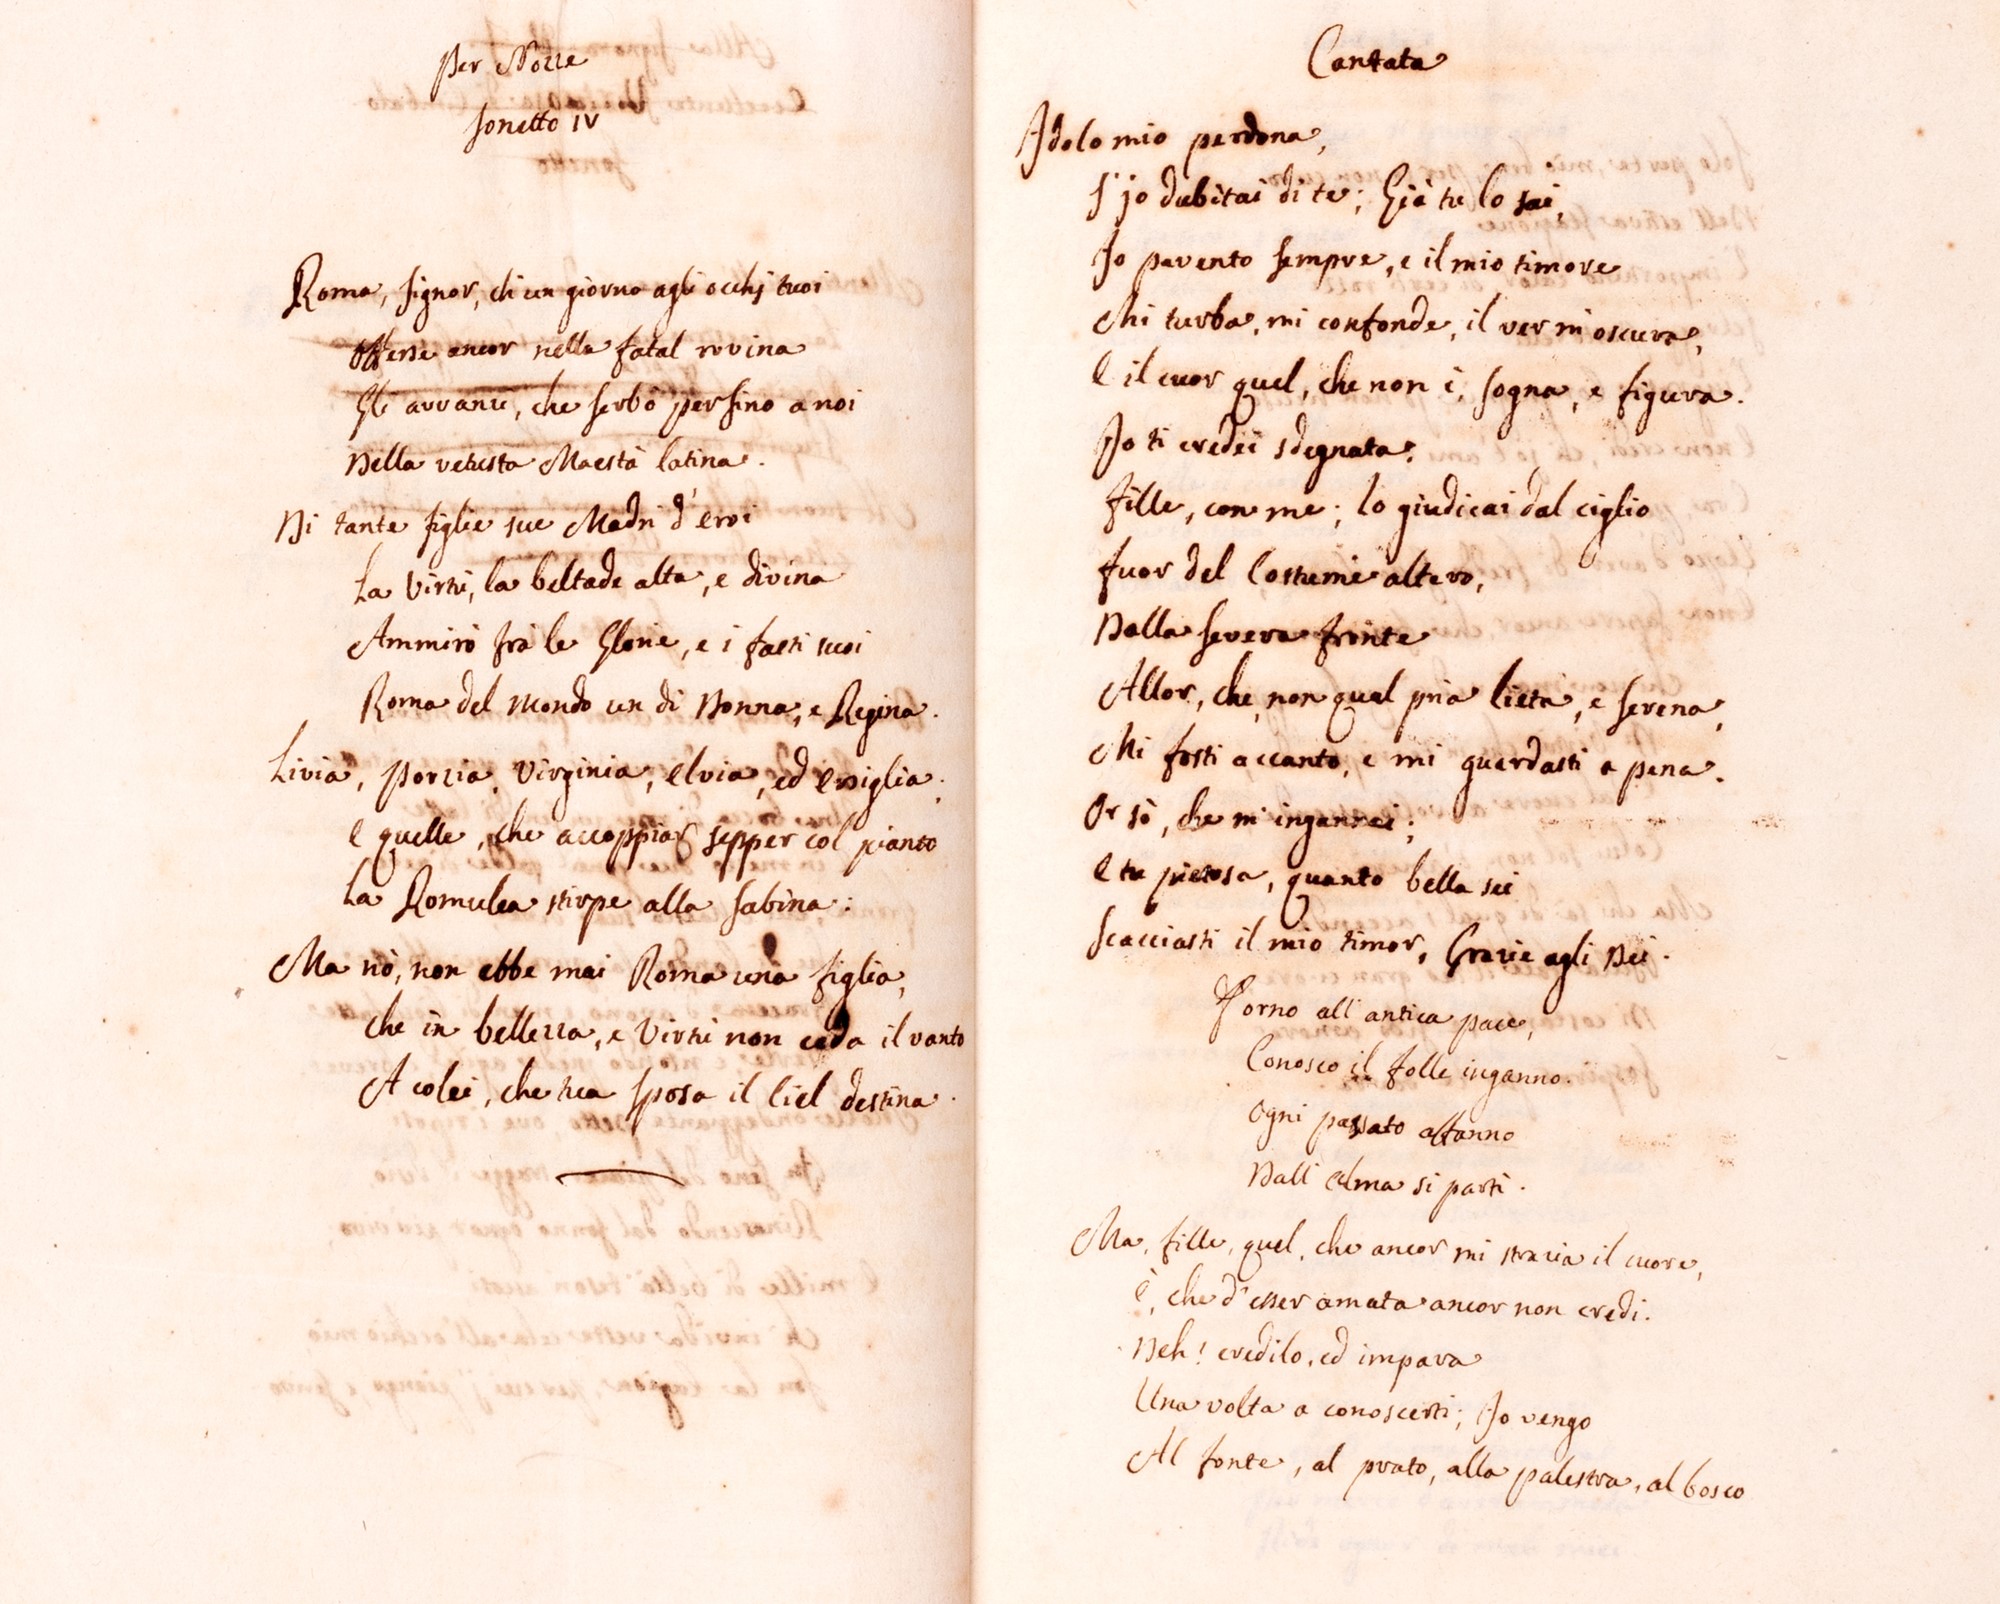 Per Nozze
Sonetto IV
Roma, Signor, ch un giorno agli occhj tuoi
Offerse ancor nella fatal rovina
Gli avvanzi, che serbò persino a noi
Della vetusta Maestà latina.
Di tante figlie sue Madri d'Eroi
La Virtù, la beltade alta, e divina
Ammirò frà le Glorie, e i fasti suoi
Roma del Mondo un dì Donna, e Regina.
Livia, Porzia, Virginia, Elvia, ed Ersiglia,
E quelle, che accoppiar sepper col pianto
La Romulea stirpe alla Sabina:
Ma nò, non ebbe mai Roma una figlia,
Che in bellezza, e Virtù non ceda il vanto
A colei, che tua Sposa il Ciel destina.
Cantata
Idolo mio perdona,
S'jo dubitai di te; Già tu lo sai,
Jo pavento sempre, e il mio timore
Mi turba, mi confonde, il ver m'oscura,
E il cuor quel, che non è, sogna, e figura.
Jo ti credei sdegnata,
Fille, con me; lo giudicai dal ciglio
Fuor del Costume altero,
Dalla severa fronte
Allor, che non qual pria lieta, e serena,
Mi fosti accanto, e mi guardasti a pena.
Or sò, che m'ingannai;
E tu pietosa, quanto bella sei
Scacciasti il mio timor, Grazie agli Dei.
Torno all'antica pace,
Conosco il folle inganno.
Ogni passato affanno
Dall'alma si partì.
Ma, Fille, quel, che ancor mi strazia il cuore,
È, che d'esser amata ancor non credi.
Deh! credilo, ed impara
Una volta a conoscerti; Jo vengo
Al fonte, al prato, alla palestra, al bosco